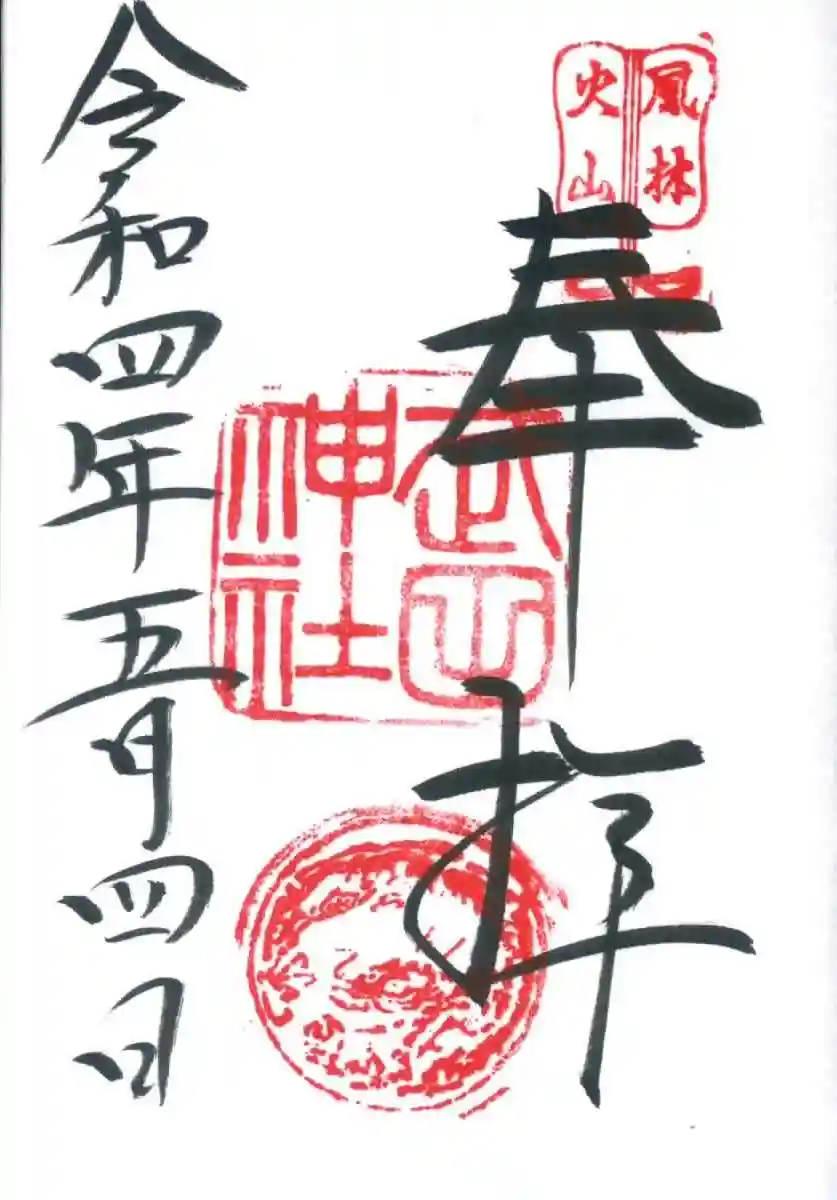 風林
火山
奉拝
武田
神社
令和四年五月四日